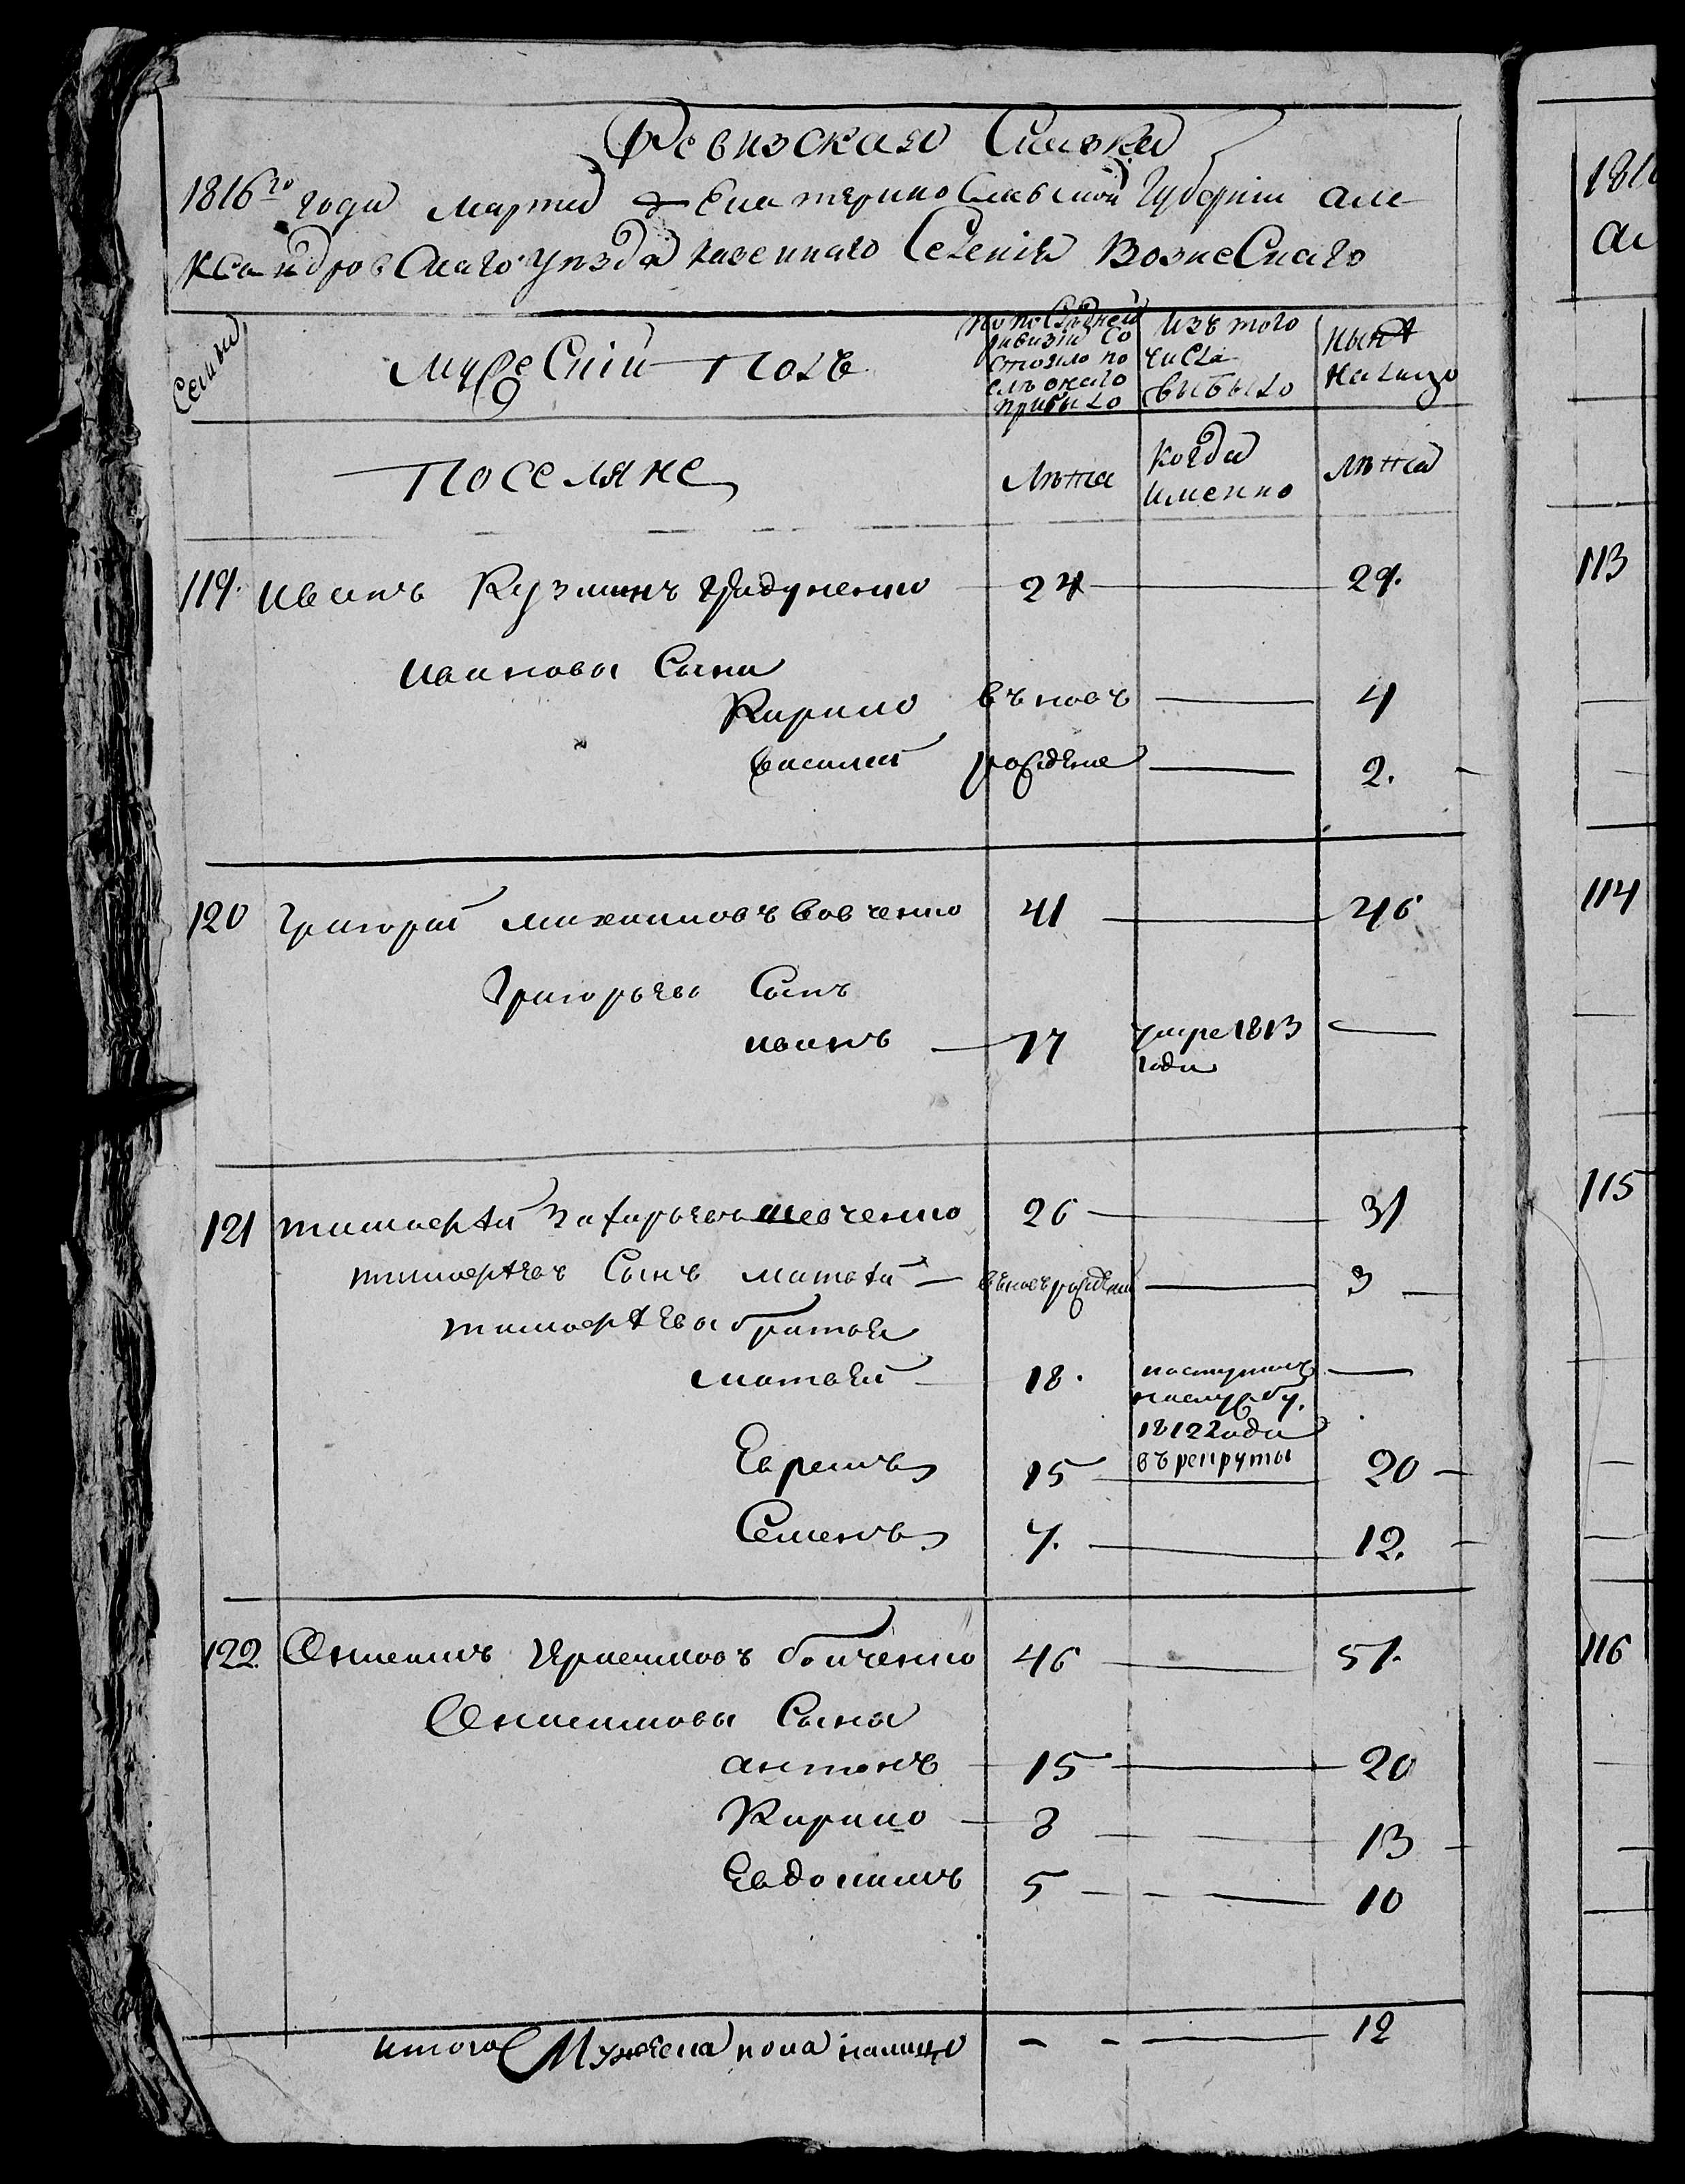 Ревизская Сказка
1816го года марта Екатеринославской Губернїи Але
ксандровскаго уезда казеннаго Селенїя Вознескаго
Семьи
Мужескїй Полъ
По последней ревизїи состояло и после онаго прибыло
Изъ того числа выбыло
Ныне на лицо
Поселяне
Лета
Когда именно
Лета
119. Иванъ Кузминъ 24 29.
Ивановы Сына
Кирило въновъ 4
Василей рождене 2.
120 Григорей Михаиловъ Вовченко 41 46
Григорьевъ Сынъ
Иванъ 17 умре 1813
года
121 Тимофей Захарьевъ Шевченко 26 31
Тимофеевъ Сынъ Матвей въновъ рожденъ 3
Тимофеевы братья
Матвей 18. поступилъ
наслужбу.
1812 года
въ рекруты
Ефремъ 15 20
Семенъ 7. 12.
122 Онисимъ Бойченко 46 51.
Онисимовы Сына
Антонъ 15 20
Кирило 8 13
Евдокимъ 5 10
Итого Мужеска пола налицо 12
1816
Ал
113
114
115
116